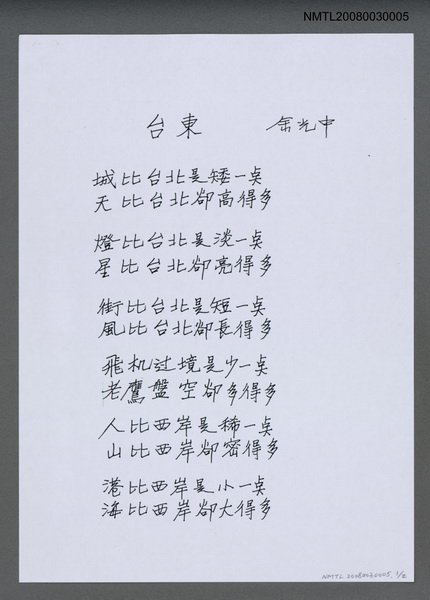 NMTL20080030005
台東 余光中
城比台北是矮一点
天比台北卻高得多
燈比台北是淡一点
星比台北卻亮得多
街比台北是短一点
風比台北卻長得多
飛机过境是少一点
老鷹盤空卻多得多
人比西岸是稀一点
山比西岸卻密得多
港比西岸是小一点
海比西岸卻大得多
NMTL20080030005. 1/2